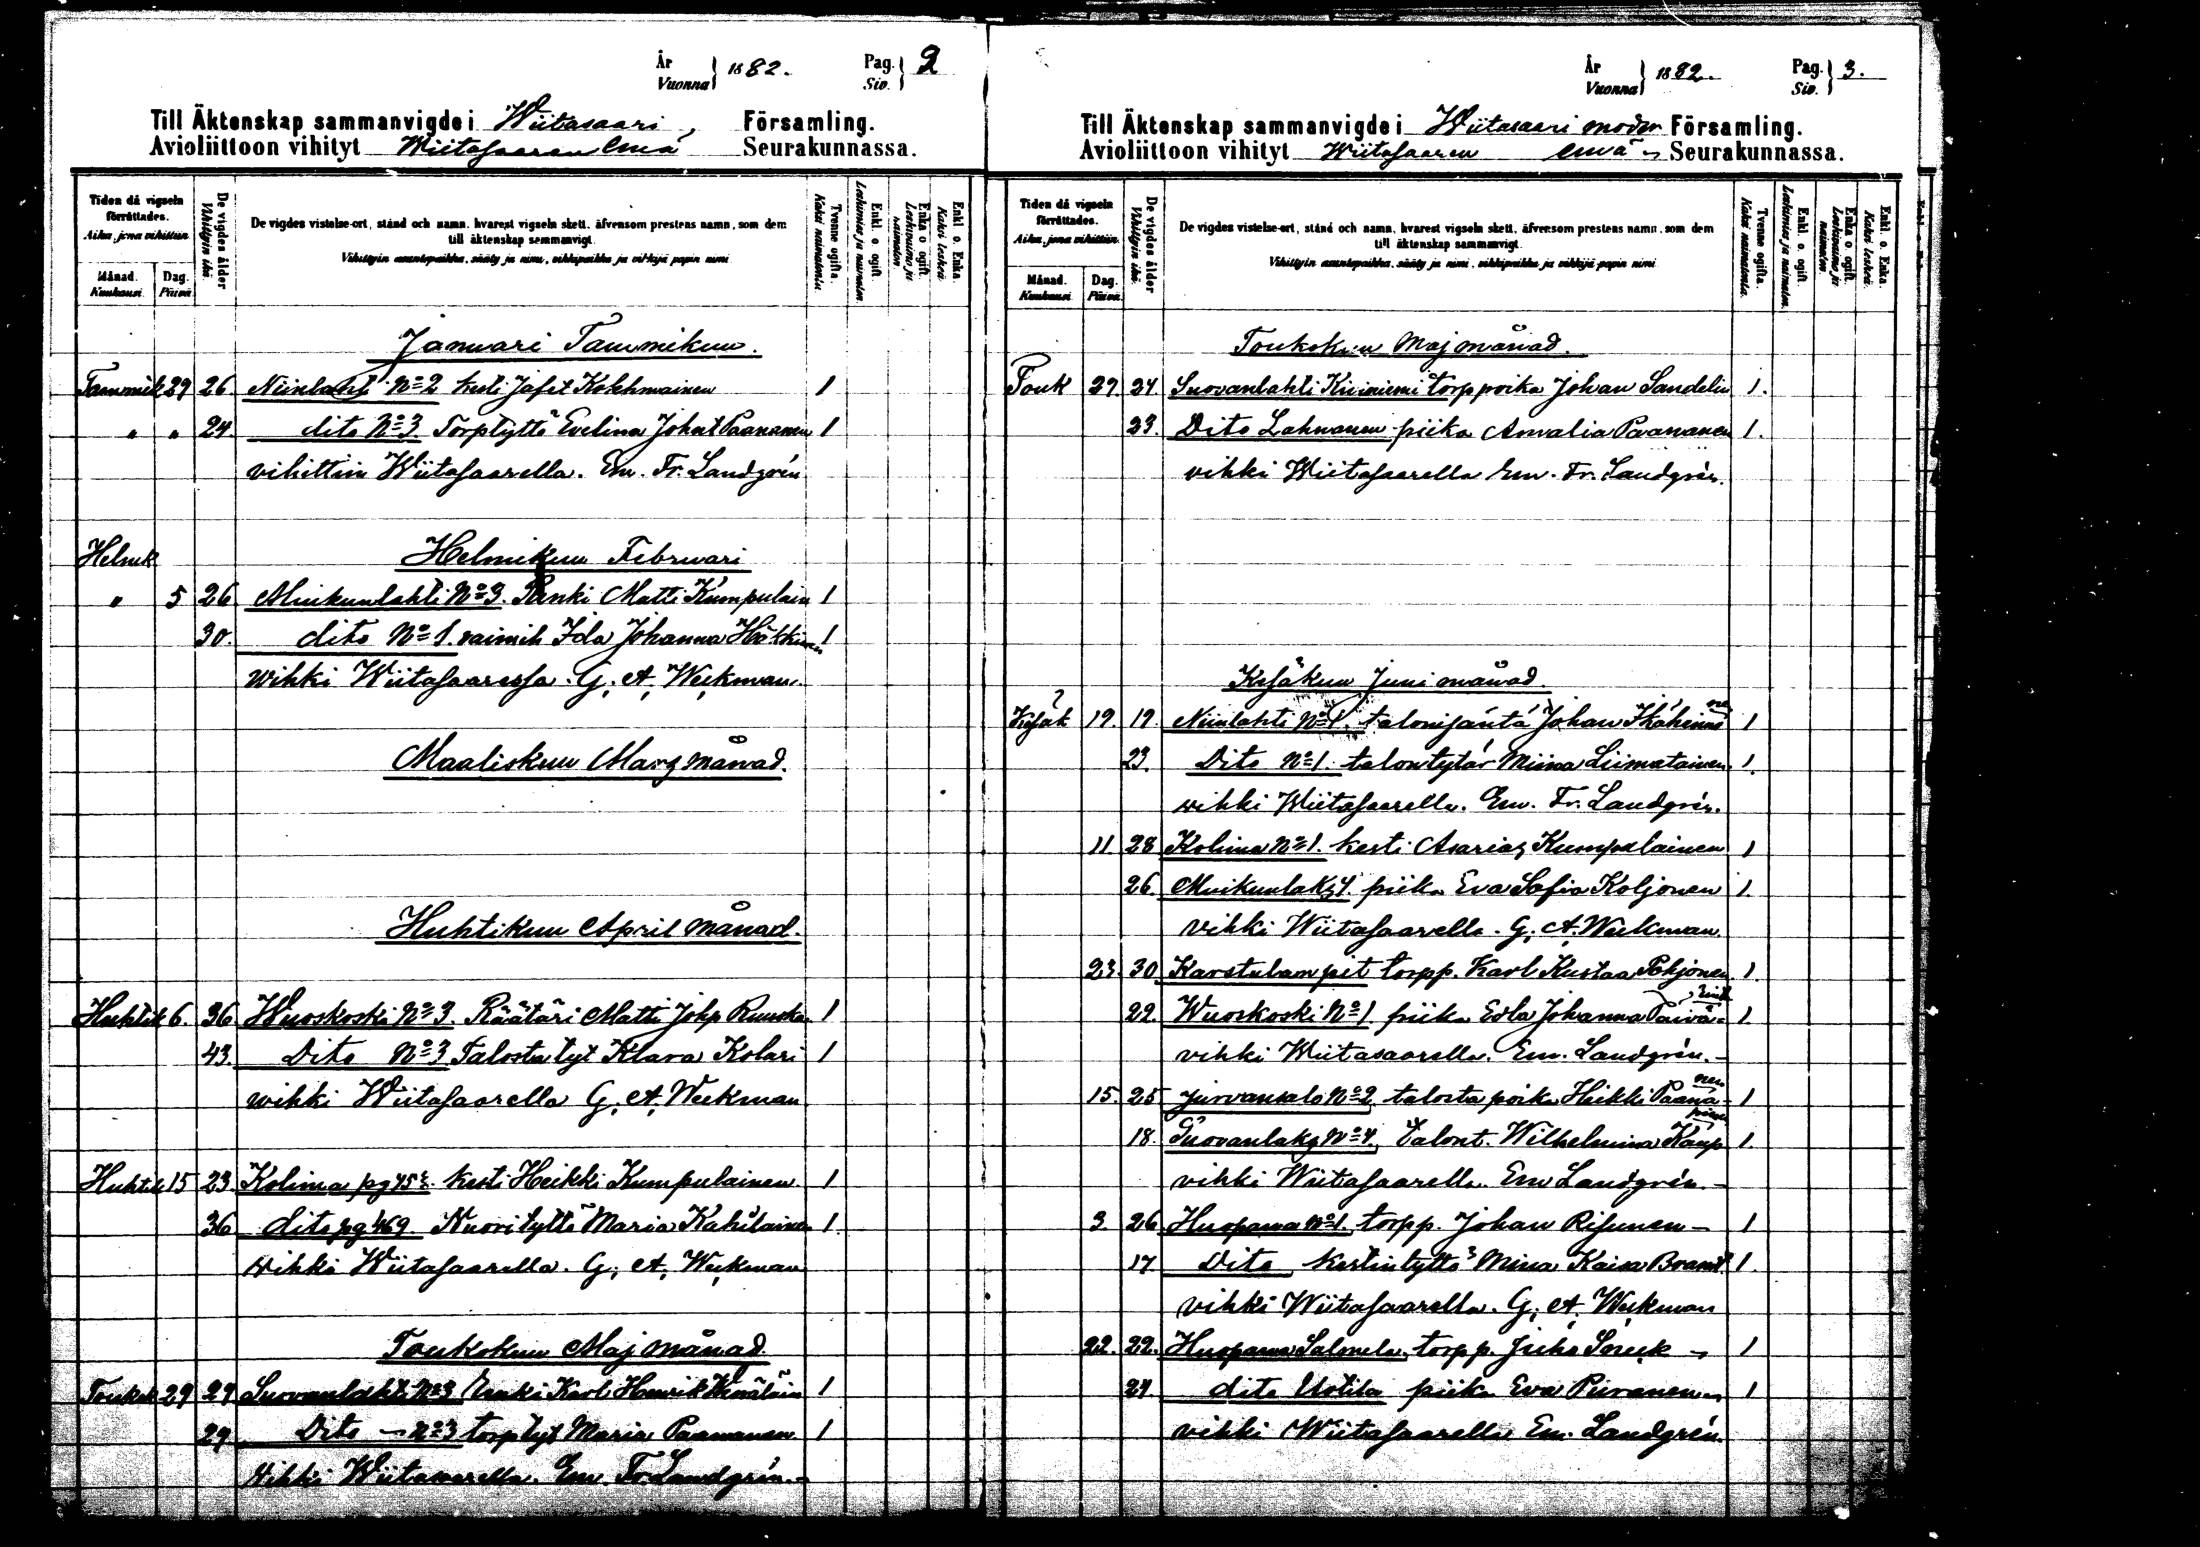 År
Vuonna } 1882.
Pag.
Siv. } 2
Till Äktenskap sammanvigde i Wiitasaari, Församling.
Avioliittoon vihityt Wiitasaaren Emä Seurakunnassa.
Tiden då vigseln förrättades.
Aika, jona vihittiin
Månad.
Kuukausi.
Dag.
Päivä
De vigdes ålder
Vihittyin ikä.
De vigdes vistelse-ort, stånd och namn, hvarest vigseln skett, äfvensom prestens namn, som dem
till äktenskap sammanvigt.
Vihittyin asuntopaikka, sääty ja nimi, vihkipaikka ja vihkijä papin nimi
Tvenne ogifta.
Kaksi naimatonta.
Enkl. o. ogift.
Leskimies ja naimaton.
Enka o. ogift.
Leskivaimo ja naimaton.
Enkl. o. Enka.
Kaksi leskeä.
Januari Tammikuu.
Tammik 29 26. Niinlahti No 2 kesti Jafet Kokkmainen 1
" " 24. dito No 3 Torptyttö Evelina Johnt Paananen 1
vihittiin Wiitasaarella. Em. Fr. Landgrén
Helmik Helmikuu Februari
" 5 26 Muikunlahti No 3. Renki Matti Kumpulain 1
30. dito No 1. Ida Johanna Häkkinen 1
Wihki Wiitasaaressa. G. A. Weckman.
Maaliskuu Marz månad.
Huhtikuu April månad.
Huhtik 6. 36 Wuoskoski No 3 Räätäri Matti Johp Ruuska 1
43. Dito No 3 Talosta tyt Klara Kolari 1
wihki Wiitasaarella G. A. Weckman
Huhtik 15 23. Kolima pg kesti Heikki Kumpulainen. 1
36 dito pg 469. Nuorityttö Maria Kahilainen 1.
wihki Wiitasaarella. G. A. Weckman
Toukokuu Maj månad
Toukok 29 27 Suovanlahti No 3 Renki Karl Henrik 1
29 Dito No 3 torp tyt Maria Paananen 1
Vihki Wiitasaarella. Em. Fr. Landgrén.
År
Vuonna } 1882.
Pag.
Siv. } 3.
Till Äktenskap sammanvigde i Wiitasaari moder Församling.
Avioliittoon vihityt Wiitasaaren emä Seurakunnassa.
Tiden då vigseln förrättades.
Aika, jona vihittiin.
Månad.
Kuukausi
Dag.
Päivä.
De vigdes ålder
Vihittyin ikä.
De vigdes vistelse-ort, stånd och namn, hvarest vigseln skett, äfvensom prestens namn, som dem
till äktenskap sammanvigt.
Vihittyin asuntopaikka, sääty ja nimi, vihkipaikka ja vihkijä papin nimi
Tvenne ogifta.
Kaksi naimatonta.
Enkl. o. ogift.
Leskimies ja naimaton.
Enka o. ogift.
Leskivaimo ja naimaton.
Enkl. o. Enka.
Kaksi leskeä.
Toukokuu Maj månad.
Touk 29. 24. Suovanlahti Kiviniemi torppoika Johan Sandelin 1.
23. Dito Lahnanen piika Amalia Paananen 1.
vihki Wiitasaarella Em. Fr. Landgrén.
Kesäkuu Juni månad.
Kesäk 19. 19. Niinlahti No 1. talonisäntä Johan Ikäheinonen 1
23. Dito No 1. talontytär Miina Liimatainen. 1.
vihki Wiitasaarella. Em. Fr. Landgrén.
11. 28 Kolima No 1. kesti Asarias Kumpulainen 1
26. Muikunlaks 4. piika Eva Sofia Koljonen 1.
vihki Wiitasaarella. G. A. Weckman.
23. 30 Karstulan pit torpp. Karl Kustaa Pohjonen 1.
22. Wuoskoski No 1. piika Edla Johanna Päivä= 1.
vihki Wiitasaarella. Em. Landgrén.
15. 25 Jurvansalo No 2. talosta poika Heikki Paananen 1
18. Suovanlaks No 4. talont. Wilhelmina Kauppinen 1.
vihki Wiitasaarella. Em Landgrén.
3. 26. Huopana No 1. torpp. Johan Risunen 1
17. Dito kestintyttö Miina Kaisa Brandt 1.
vihki Wiitasaarella. G. A. Weckman
22. 22. Huopana Salmela torpp. Juho 1
24. dito Uotila piika Eva Piiranen 1
vihki Wiitasaarella Em. Landgrén.